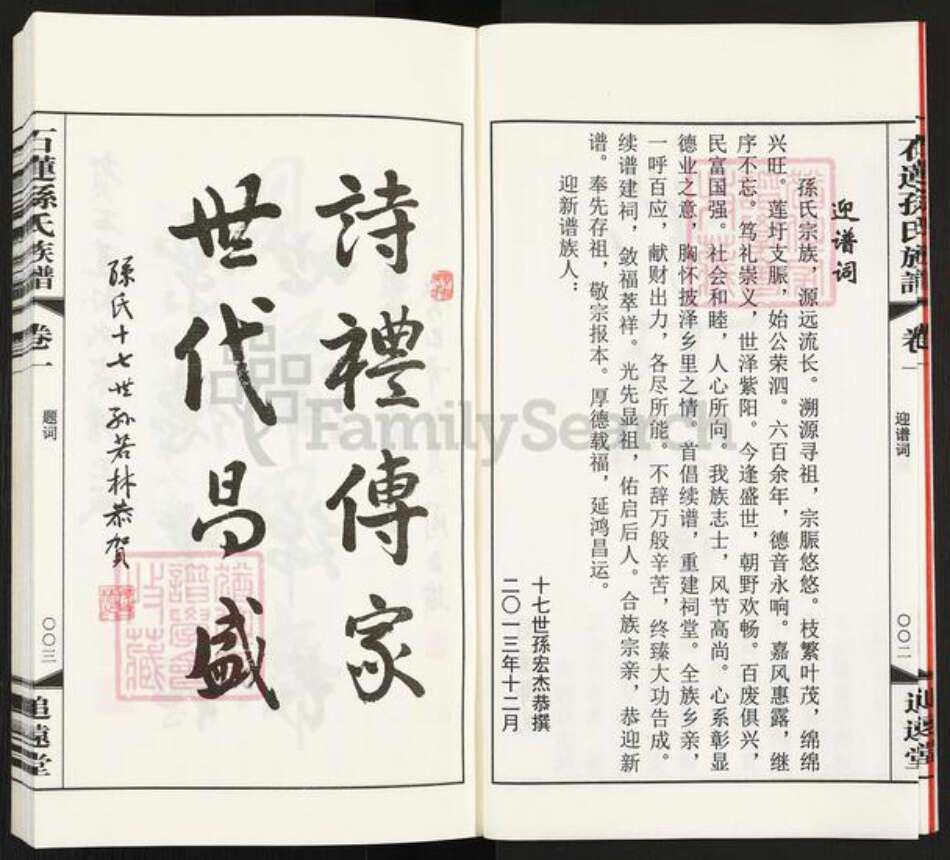 石蓮孫氏族譜
卷一
迎谱词
〇〇二
追遠堂
迎谱词
孫氏宗族，源远流长。溯源寻祖，宗脈悠悠。枝繁叶茂，绵绵
兴旺。莲圩支脈，始公荣泗。六百余年，德音永响。嘉风惠露，继
序不忘。笃礼崇义，世泽紫阳。今逢盛世，朝野欢畅。百废俱兴，
民富国强。社会和睦，人心所向。我族志士，风节高尚。心系彰显
德业之意，胸怀披泽乡里之情。首倡续谱，重建祠堂。全族乡亲，
一呼百应，献财出力，各尽所能。不辞万般辛苦，终臻大功告成。
续谱建祠，敛福萃祥。光先显祖，佑启后人。合族宗亲，恭迎新
谱。奉先存祖，敬宗报本。厚德载福，延鸿昌运。
迎新谱族人：
十七世孫宏杰恭撰
二〇一三年十二月
詩禮傳家
世代昌盛
孫氏十七世孙若林恭賀
石蓮孫氏族譜
卷一
题词
〇〇三
追遠堂
FamilySearch